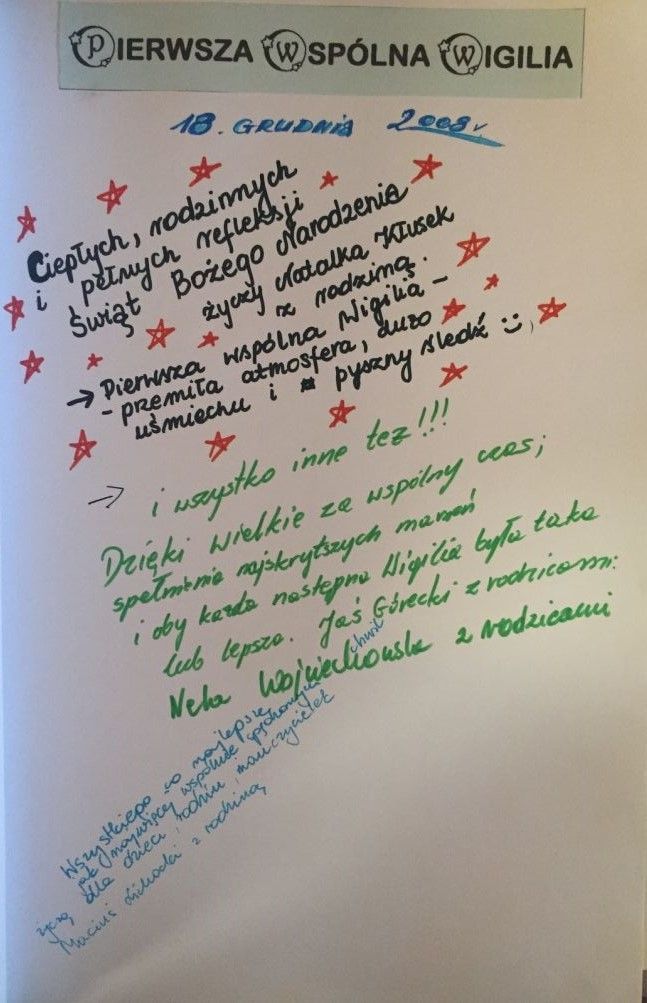 PIERWSZA WSPÓLNA WIGILIA
18. GRUDNIA 2008r
Ciepłych, rodzinnych
i pełnych refleksji
Świąt Bożego Narodzenia
życzy Natalka Kłusek
z rodziną.
→ Pierwsza wspólna Wigilia –
– przemiła atmosfera, dużo
uśmiechu i pyszny śledź :)
→ i wszystko inne też!!!
Dzięki wielkie za wspólny czas;
spełnienia najskrytszych marzeń
i oby każda następna Wigilia była taka
lub lepsza. Jaś Górecki z rodzicami
Wojciechowska z rodzicami
Wszystkiego co najlepsze,
jak najwięcej wspólnie spędzonych chwil
życzą dla dzieci, rodzin, nauczycielek
Maciuś z rodziną